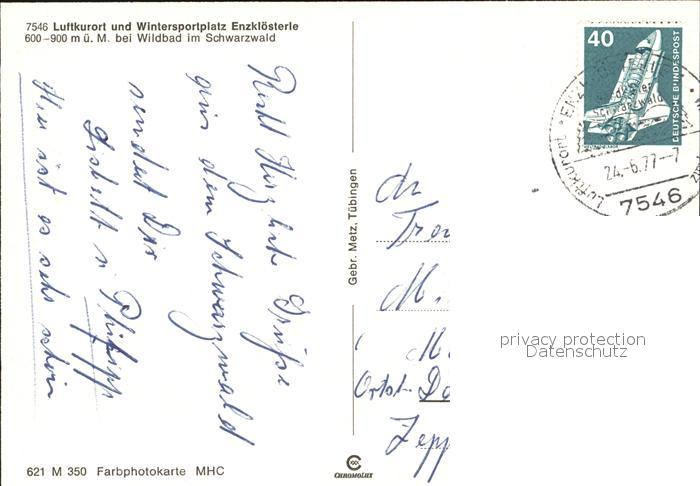 7546 Luftkurort und Wintersportplatz Enzklösterle
600–900 m ü. M. bei Wildbad im Schwarzwald
Recht Herzliche Grüße
aus dem Schwarzwald
sendet Dir
Lisbett u Philipp
Hier ist es sehr schön
Gebr. Metz, Tübingen
40
DEUTSCHE BUNDESPOST
Luftkurort
24.-6.77-7
7546
An
M.
M.
Ortst. Do
Zepp
privacy protection
Datenschutz
621 M 350 Farbphotokarte MHC
CHROMOLUX